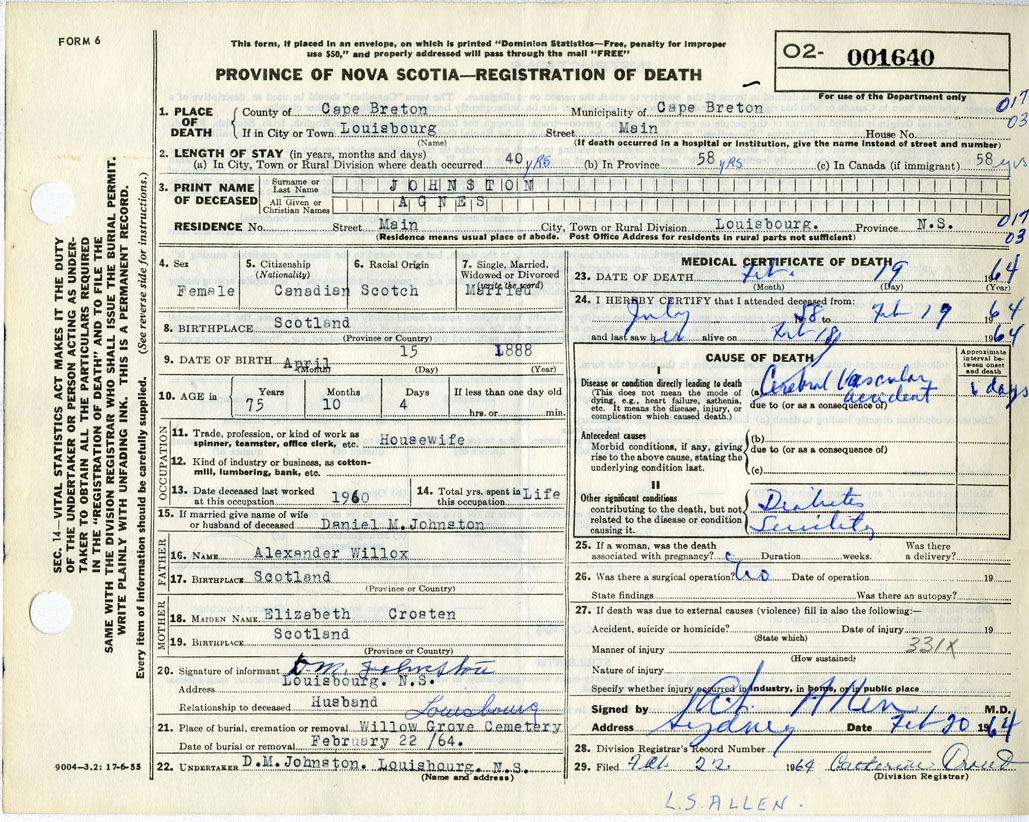 FORM 6
This form, if placed in an envelope, on which is printed "Dominion Statistics—Free, penalty for improper
use $50," and properly addressed will pass through the mail "FREE"
PROVINCE OF NOVA SCOTIA—REGISTRATION OF DEATH
02- 001640
For use of the Department only
SEC. 14—VITAL STATISTICS ACT MAKES IT THE DUTY
OF THE UNDERTAKER OR PERSON ACTING AS UNDER-
TAKER TO OBTAIN ALL THE PARTICULARS REQUIRED
IN THE "REGISTRATION OF DEATH" AND TO FILE THE
SAME WITH THE DIVISION REGISTRAR WHO SHALL ISSUE THE BURIAL PERMIT.
WRITE PLAINLY WITH UNFADING INK. THIS IS A PERMANENT RECORD.
Every item of information should be carefully supplied. (See reverse side for instructions.)
1. PLACE OF DEATH
County of Cape Breton Municipality of Cape Breton 017
If in City or Town Louisbourg Street Main House No. 03
(Name) (If death occurred in a hospital or institution, give the name instead of street and number)
2. LENGTH OF STAY (in years, months and days)
(a) In City, Town or Rural Division where death occurred 40 yrs (b) In Province 58 yrs (c) In Canada (if immigrant) 58 yrs
3. PRINT NAME OF DECEASED
Surname or Last Name JOHNSTON
All Given or Christian Names AGNES
RESIDENCE No. Street Main City, Town or Rural Division Louisbourg. Province N.S. 017 03
(Residence means usual place of abode. Post Office Address for residents in rural parts not sufficient)
4. Sex 5. Citizenship (Nationality) 6. Racial Origin 7. Single, Married, Widowed or Divorced (write the word)
Female Canadian Scotch Married
8. BIRTHPLACE Scotland
(Province or Country)
9. DATE OF BIRTH April 15 1888
(Month) (Day) (Year)
10. AGE in Years Months Days If less than one day old
75 10 4 hrs. or min.
OCCUPATION
11. Trade, profession, or kind of work as spinner, teamster, office clerk, etc. Housewife
12. Kind of industry or business, as cotton-mill, lumbering, bank, etc.
13. Date deceased last worked at this occupation 1960 14. Total yrs. spent in this occupation Life
15. If married give name of wife or husband of deceased Daniel M. Johnston
FATHER
16. NAME Alexander Willox
17. BIRTHPLACE Scotland
(Province or Country)
MOTHER
18. MAIDEN NAME Elizabeth Crosten
19. BIRTHPLACE Scotland
(Province or Country)
20. Signature of informant D.M. Johnston
Address Louisbourg. N.S.
Relationship to deceased Husband
Louisbourg
21. Place of burial, cremation or removal Willow Grove Cemetery
Date of burial or removal February 22 /64.
22. UNDERTAKER D.M. Johnston. Louisbourg. N.S.
(Name and address)
9004-3.2: 17-6-55
MEDICAL CERTIFICATE OF DEATH
23. DATE OF DEATH Feb. 19 1964
(Month) (Day) (Year)
24. I HEREBY CERTIFY that I attended deceased from:
July 58 to Feb 19 1964
and last saw her alive on Feb 18 1964
CAUSE OF DEATH
Approximate interval between onset and death
I
Disease or condition directly leading to death
(This does not mean the mode of dying, e.g., heart failure, asthenia, etc. It means the disease, injury, or complication which caused death.)
(a) Cerebral Vascular accident days
due to (or as a consequence of)
Antecedent causes
Morbid conditions, if any, giving rise to the above cause, stating the underlying condition last.
(b)
due to (or as a consequence of)
(c)
II
Other significant conditions
contributing to the death, but not related to the disease or condition causing it.
Diabetes
Senility
25. If a woman, was the death associated with pregnancy? Duration weeks. Was there a delivery?
26. Was there a surgical operation? No Date of operation 19
State findings Was there an autopsy?
27. If death was due to external causes (violence) fill in also the following:—
Accident, suicide or homicide? Date of injury 19
(State which)
Manner of injury 331X
(How sustained)
Nature of injury
Specify whether injury occurred in industry, in home, or in public place
Signed by Allen M.D.
Address Sydney Date Feb 20 1964
28. Division Registrar's Record Number
29. Filed Feb. 22 1964 Catherine
(Division Registrar)
L.S. ALLEN.